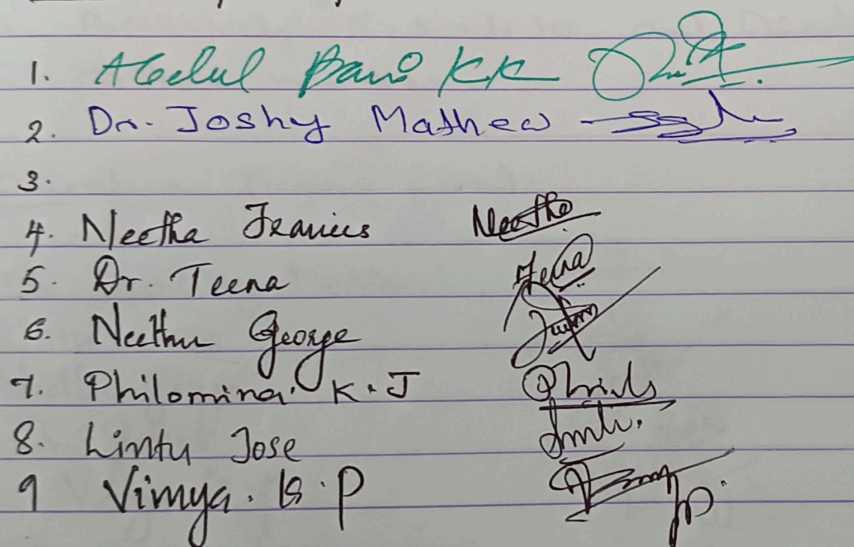 1. Abdul Bari KK
2. Dr. Joshy Mathew
3.
4. Neetha Francis Neetha
5. Dr. Teena Teena
6. Neethu George
7. Philomina K.J
8. Lintu Jose
9 Vimya. K.P